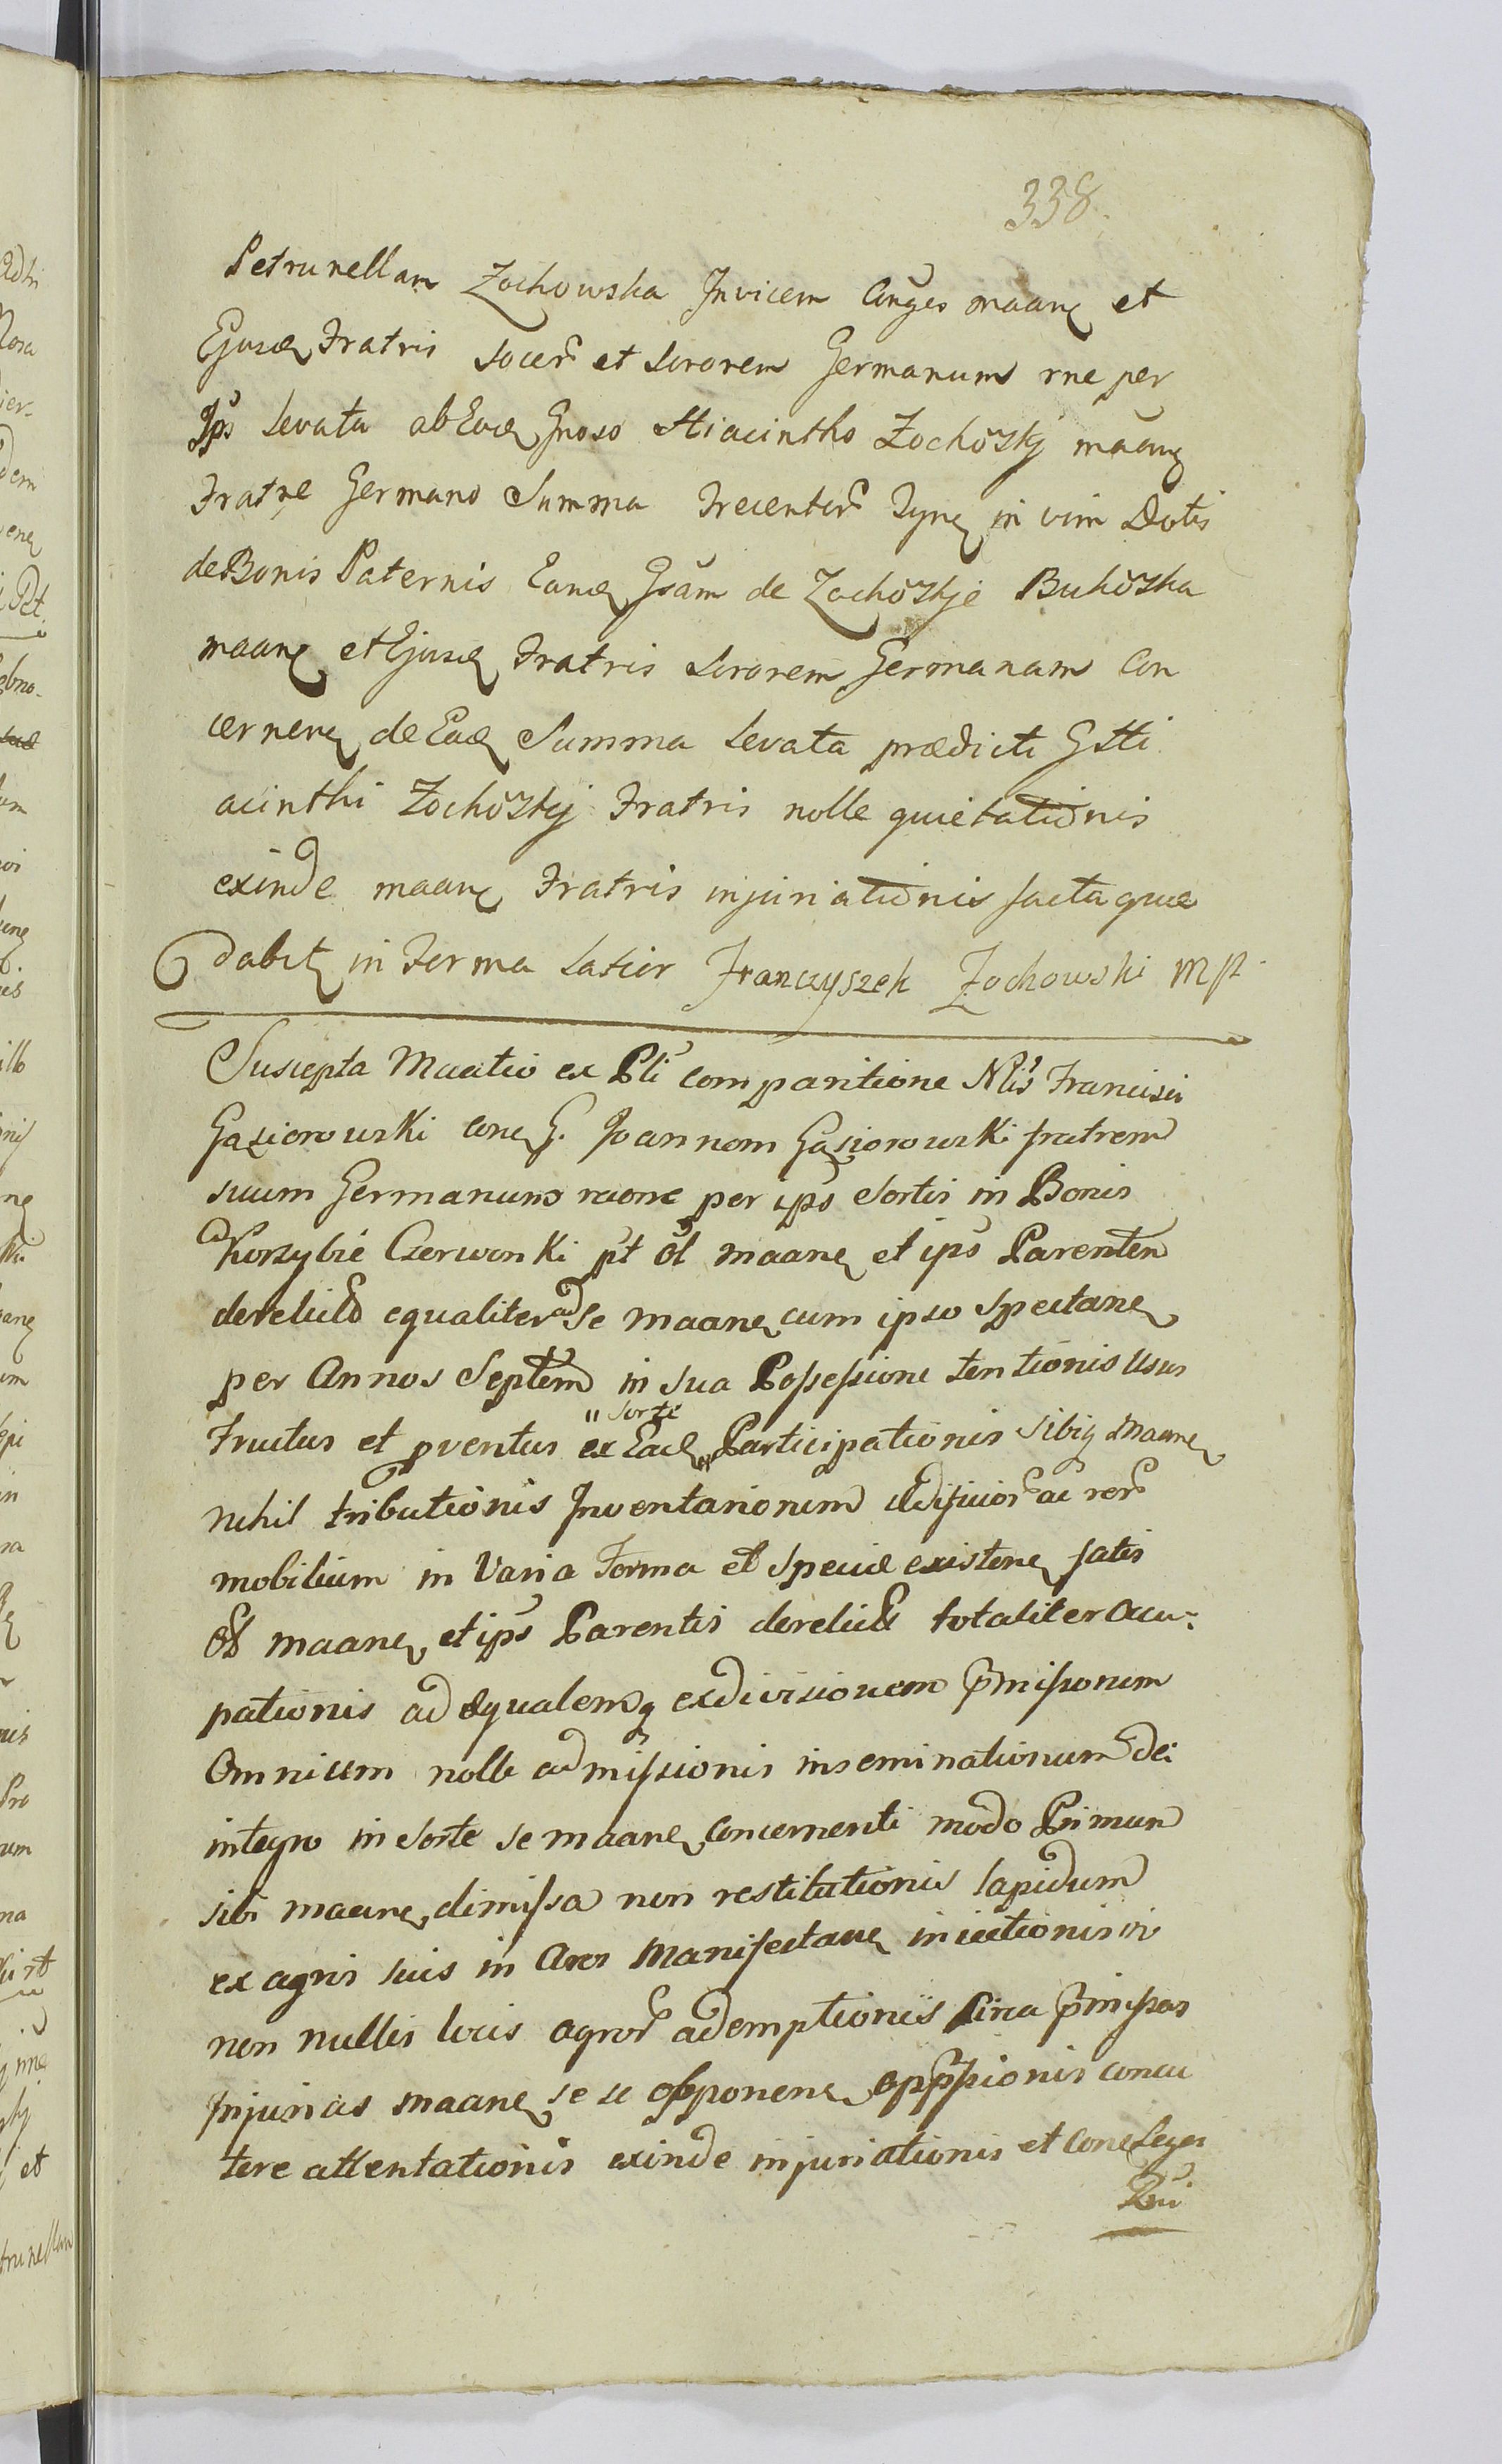 338.
Petrunellam Zochowska Invicem Conges maane et
Ejusde Fratris socer et sororem Germanum rne per
Ips levata ab Eode Gnoso Hiacintho Zochõskij maane
Fratre Germano Summa Trecentor Tyne in vim Dotis
de Bonis Paternis Eande Gsam de Zochõskje Bukõska
maane et Ejusde Fratris sororem Germanam Con
cernene de Eade Summa levata prædicti G Hi
acinthi Zochõskij Fratris nolle quietationis
exinde maane Fratris injuriationis facta que
dabit in Forma latior Franczyszek Zochowski mp
Suscepta Maatio ex Pli comparitione Nlis Francisci
Gąsiorowski cone G. Joannem Gąsiorowski fratrem
suum Germanum raone per ips Sortis in Bonis
Korzybie Czerwonki pt ol maane et ips Parentem
derelicto equaliter ad se maane cum ipso spectane
per Annos Septem in sua Possessione tentionis Usus
Fructus et pventus ex Eade " sorte Participationis sibiq Maane
nihil tributionis Inventariorum ædificior ac rer
mobilium in Varia Forma et specie existene fatis
ol maane et ips Parentis derelict totaliter Occu:
pationis ad equalemq exdivisionem pmissorum
Omnium nolle admissionis inseminationum de
integro in sorte se maane concernenti modo Primum
sibi maane dimissa non restitutionis lapidum
ex agris suis in Agros Manifestane iniectionis in
non nullis locis agror ademptionis circa pmissas
Injurias maane se se opponene opppsionis concu
tere attentationis exinde injuriationis et cone Leges